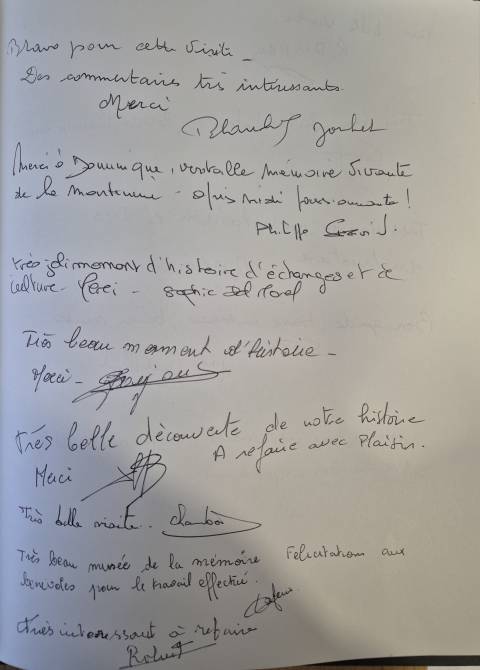 Bravo pour cette visite -
Des commentaires très intéressants.
Merci
Merci à Dominique, véritable mémoire vivante
de la - après midi passionnante !
Philippe
très joli moment d'histoire d'échanges et de
culture - Merci - Sophie
Très beau moment d'histoire -
Merci -
Très belle découverte de notre histoire
A refaire avec Plaisir.
Merci
Très belle visite.
Très beau musée de la mémoire Félicitations aux
bénévoles pour le travail effectué.
très interessant à refaire
Robert